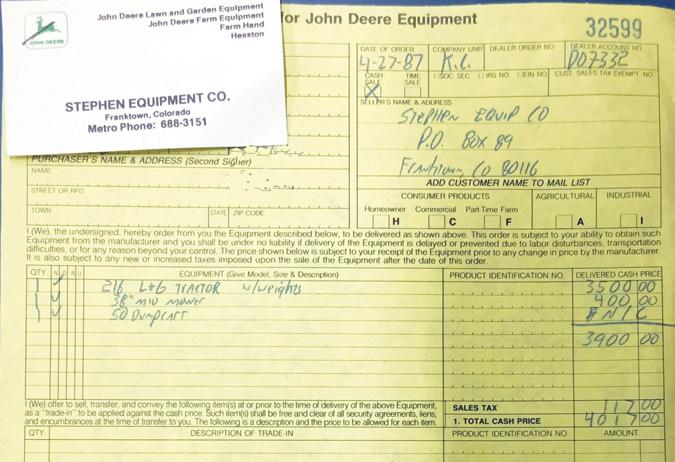 John Deere Lawn and Garden Equipment
John Deere Farm Equipment
Farm Hand
Hesston
JOHN DEERE
STEPHEN EQUIPMENT CO.
Franktown, Colorado
Metro Phone: 688-3151
for John Deere Equipment
32599
DATE OF ORDER COMPANY UNIT DEALER ORDER NO DEALER ACCOUNT NO.
4-27-87 K.C. D07332
CASH SALE TIME SALE SOC SEC IRS NO EIN NO CUST. SALES TAX EXEMPT NO.
X
SELLER'S NAME & ADDRESS
Stephen Equip Co
P.O. Box 89
Franktown, CO 80116
PURCHASER'S NAME & ADDRESS (Second Signer)
NAME
STREET OR RFD
TOWN STATE ZIP CODE
ADD CUSTOMER NAME TO MAIL LIST
CONSUMER PRODUCTS AGRICULTURAL INDUSTRIAL
Homeowner Commercial Part-Time Farm
H C F A I
I (We), the undersigned, hereby order from you the Equipment described below, to be delivered as shown above. This order is subject to your ability to obtain such
Equipment from the manufacturer and you shall be under no liability if delivery of the Equipment is delayed or prevented due to labor disturbances, transportation
difficulties, or for any reason beyond your control. The price shown below is subject to your receipt of the Equipment prior to any change in price by the manufacturer.
It is also subject to any new or increased taxes imposed upon the sale of the Equipment after the date of this order.
QTY N D R U EQUIPMENT (Give Model, Size & Description) PRODUCT IDENTIFICATION NO. DELIVERED CASH PRICE
1 216 L+G TRACTOR w/weights 3500 00
1 38" MID MOWER 400 00
1 50 Dumpcart N/C
3900 00
I (We) offer to sell, transfer, and convey the following item(s) at or prior to the time of delivery of the above Equipment,
as a "trade-in" to be applied against the cash price. Such item(s) shall be free and clear of all security agreements, liens,
and encumbrances at the time of transfer to you. The following is a description and the price to be allowed for each item.
SALES TAX 117 00
1. TOTAL CASH PRICE 4017 00
QTY. DESCRIPTION OF TRADE-IN PRODUCT IDENTIFICATION NO. AMOUNT